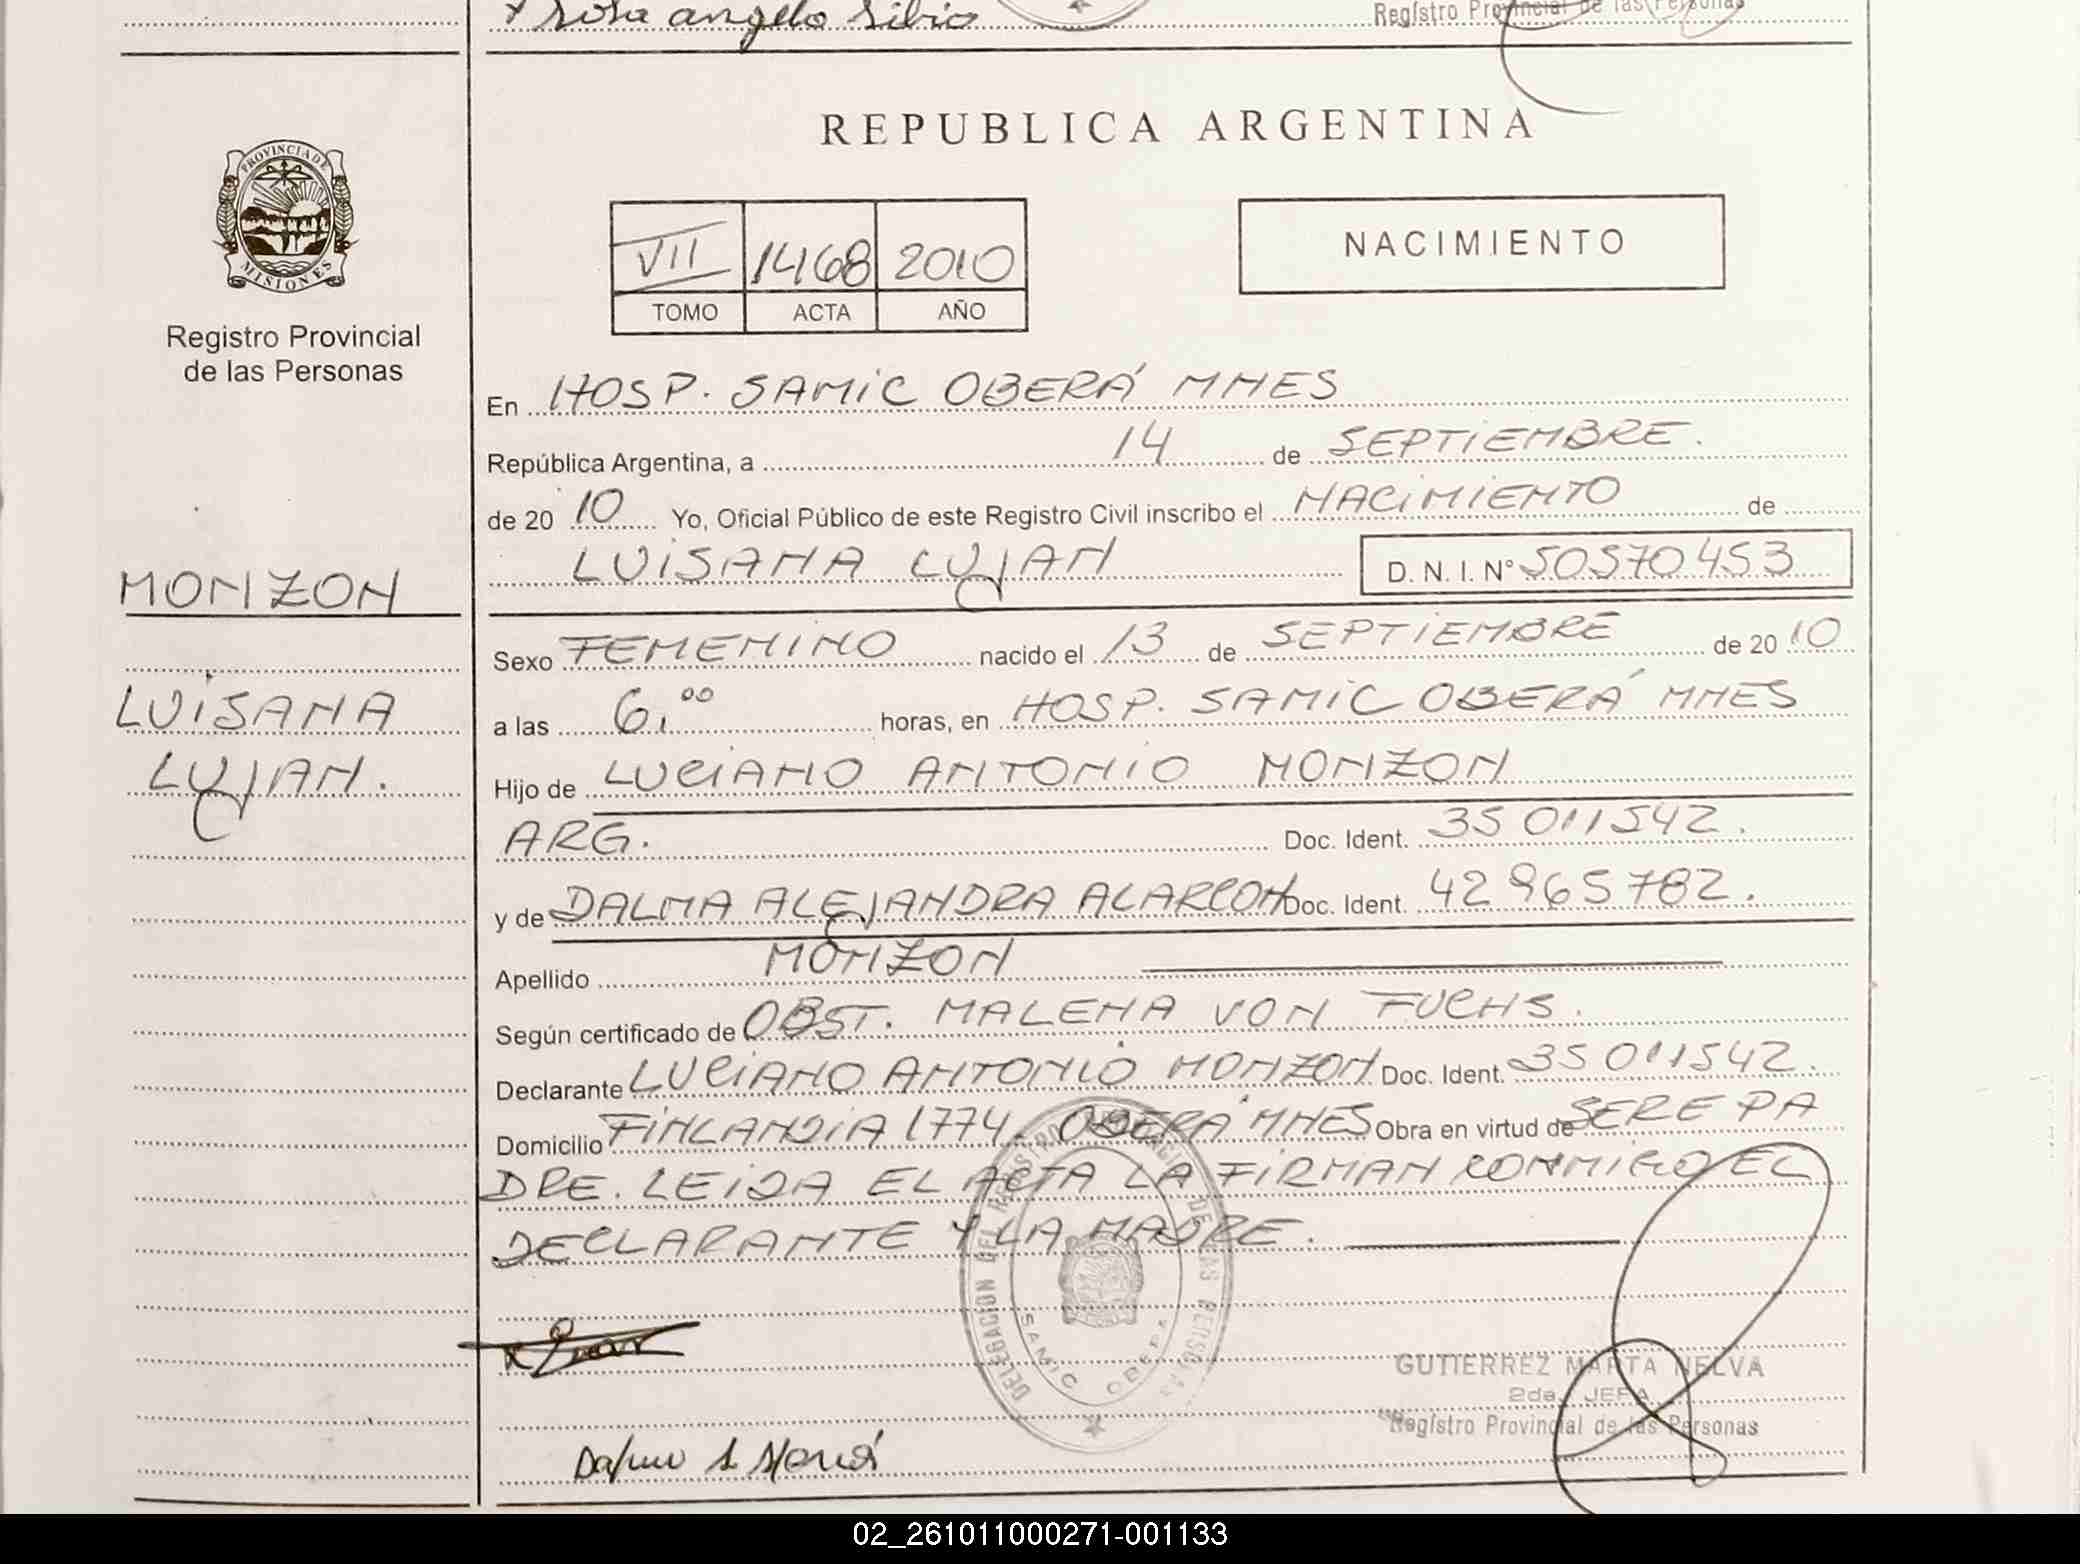 x Rosa angela Silvio
Registro Provincial de las Personas
REPUBLICA ARGENTINA
PROVINCIA DE
MISIONES
Registro Provincial
de las Personas
VII 1468 2010
TOMO ACTA AÑO
NACIMIENTO
En HOSP. SAMIC OBERÁ MNES
República Argentina, a 14 de SEPTIEMBRE.
de 20 10 Yo, Oficial Público de este Registro Civil inscribo el NACIMIENTO de
LUISANA LUJAN D. N. I. N° 50570453
MONZON
LUISANA
LUJAN.
Sexo FEMENINO nacido el 13 de SEPTIEMBRE de 20 10
a las 6,00 horas, en HOSP. SAMIC OBERÁ MNES
Hijo de LUCIANO ANTONIO MONZON
ARG. Doc. Ident. 35 011542.
y de DALMA ALEJANDRA ALARCON Doc. Ident. 42965782.
Apellido MONZON
Según certificado de OBST. MALENA VON FUCHS.
Declarante LUCIANO ANTONIO MONZON Doc. Ident. 35 011542.
Domicilio FINLANDIA 1774. OBERÁ MNES Obra en virtud de SERE PA
DRE. LEIDA EL ACTA LA FIRMAN CONMIGO EL
DECLARANTE Y LA MADRE.
DELEGACION DEL REGISTRO PROVINCIAL DE LAS PERSONAS
SAMIC OBERA
GUTIERREZ MARTA NELVA
2da. JEFA
Registro Provincial de las Personas
02_261011000271-001133